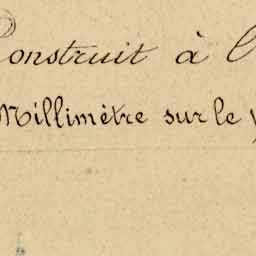 Construit à l
Millimètre sur le